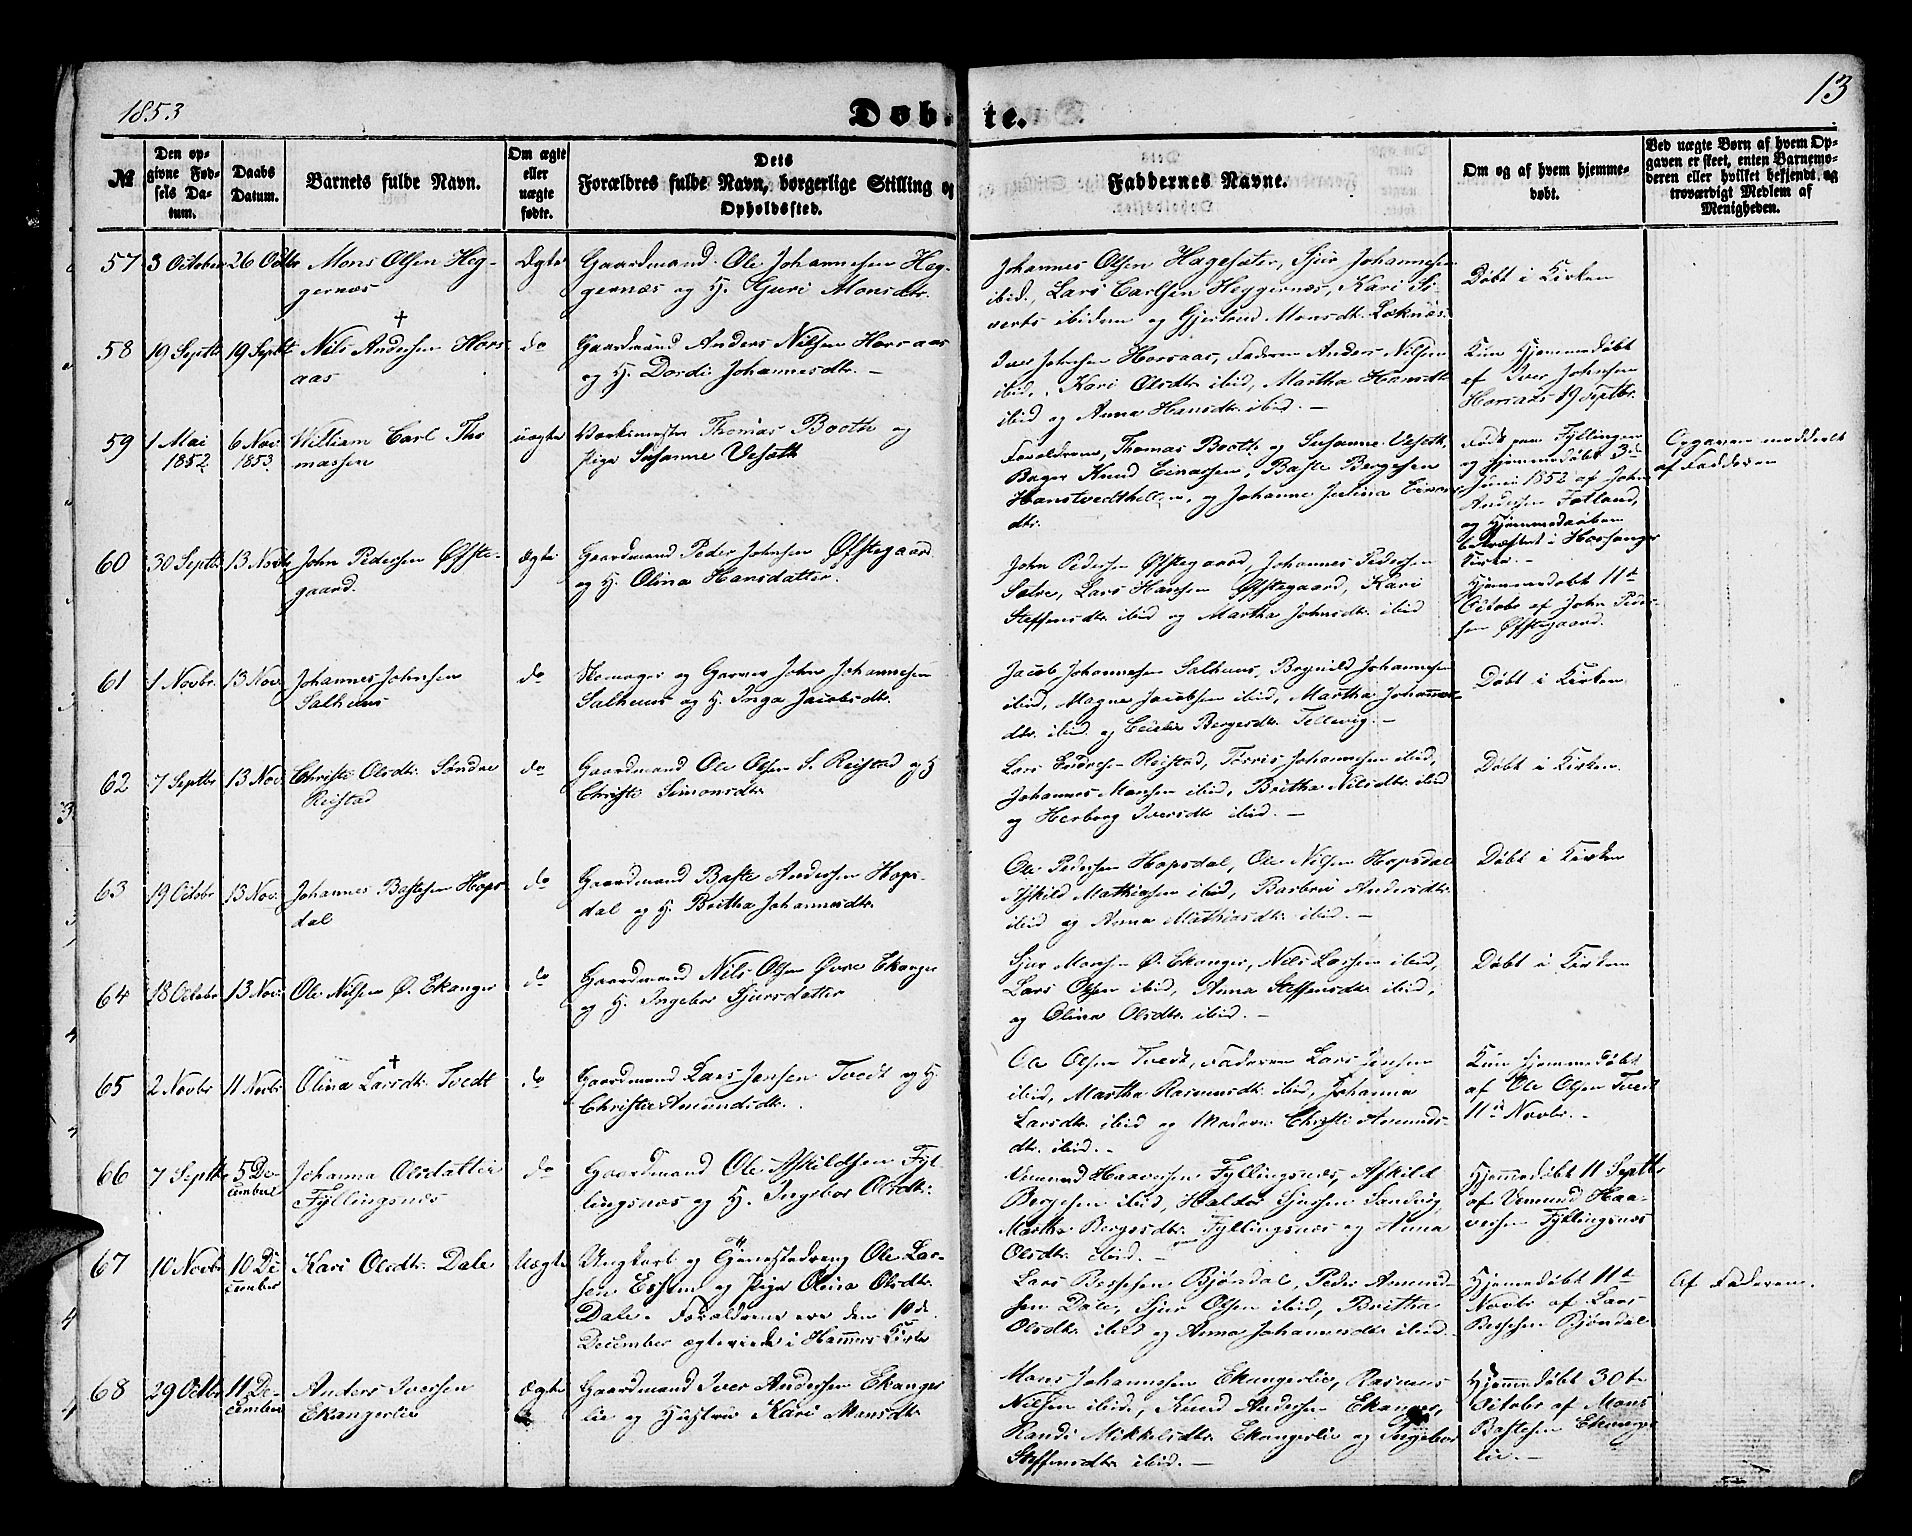 1853
Døbte.
13
№
Den opgivne Fødsels Datum.
Daabs Datum.
Barnets fulde Navn.
Om ægte eller uægte fødte.
Dets Forældres fulde Navn, borgerlige Stilling og Opholdssted.
Faddernes Navne.
Om og af hvem hjemmedøbt.
Ved uægte Børn af hvem Opgaven er skeet, enten Barnemoderen eller hvilket bekjendt og troværdigt Medlem af Menigheden.
57
3 October
26 Octbr
Mons Olsen Heg-
gernæs
Ægte
Gaardmand Ole Johannesen Heg-
gernæs og H. Guri Monsdtr.
Johannes Olsen Hagesæter, Sjur Johannesen
ibid., Lars Carlsen Heggernæs, Kari Si-
verts ibidem og Gjertrud Monsdtr.
Døbt i Kirken
58
19 Septbr
19 Septbr
Nils Andersen Hors-
aas
†
do
Gaardmand Anders Nilsen Horsaas
og H. Dordi Johannesdtr. —
Iver Johnsen Horsaas, Faderen Anders Nilsen
ibid., Kari Olsdtr. ibid, Martha Hansdtr.
ibid og Anna Hansdtr. ibid. —
Kun Hjemmedøbt
af Iver Johnsen
Horsaas 19 Septbr.
59
1 Mai
1852
6 Nov.
1853
William Carl Tho
massen
uægte
Værkmester Thomas Booth og
Pige Susanne
Forældrene, Thomas Booth og Susanne
Bager Knud Einarsen, Baste Bergesen
Hanstvedthellen, og Johanne Julina Einars
dtr.
Født paa Fyllingen
og hjemmedøbt 3de
Junii 1852 af John
Andersen Fotland,
og Hjemmedaaben
bekræftet i Hosanger
Kirke. —
Opgaven meddeelt
af Fadderen
60
30 Septbr
13 Novbr
John Pedersen Øfste-
gaard.
Ægte
Gaardmand Peder Johnsen Øfstegaard
og H. Olina Hansdatter.
John Pedersen Øfstegaard, Johannes Pedersen
Sætre, Lars Hansen Øfstegaard, Kari
Steffensdtr. ibid og Martha Johnsdtr. ibid
Hjemmedøbt 11te
Octobr af John Peder-
sen Øfstegaard.
61
1 Novbr.
13 Nov.
Johannes Johnsen
Salhuus
do
Skomager og Garver John Johannesen
Salhuus og H. Inga Jacobsdtr.
Jacob Johannesen Salhuus, Bognild Johannesen
ibid, Magne Jacobsen ibid, Martha Johannes-
dtr. ibid og Bergesdtr. Tellevig. —
Døbt i Kirken
62
7 Septbr
13 Nov.
Christi Olsdtr. Søndre
Reistad
do
Gaardmand Ole Olsen S. Reistad og H
Christi Simonsdtr.
Lars Endresen Reistad, Torris Johannesen ibid,
Johannes Monsen ibid, Britha Nilsdtr. ibid
og Herborg Iversdtr. ibid. —
Døbt i Kirken.
63
19 Octobr
13 Nov.
Johannes Bastesen Hops-
dal
do
Gaardmand Baste Andersen Hops-
dal og H. Britha Johannesdtr.
Ole Pedersen Hopsdal, Ole Nilsen Hopsdal
Askild Mathiasen ibid, Barbro Andersdtr.
ibid og Anna Mathiasdtr. ibid. —
Døbt i Kirken
64
18 Octobr
13 Nov.
Ole Nilsen Ø. Ekanger
do
Gaardmand Nils Olsen Øvre Ekanger
og H. Ingebor Sjursdatter
Sjur Monsen Ø. Ekanger, Nils Larsen ibid,
Lars Olsen ibid, Anna Steffensdtr. ibid,
og Olina Olsdtr. ibid. —
Døbt i Kirken
65
2 Novbr
11 Novbr
Olina Larsdtr. Tvedt
†
do
Gaardmand Lars Jensen Tvedt og H
Christi Amundsdtr.
Ole Olsen Tvedt, Faderen Lars Jensen
ibid, Martha Rasmusdtr. ibid, Johanna
Larsdtr. ibid og Moderen Christi Amunds-
dtr. ibid. —
Kun hjemmedøbt
af Ole Olsen Tvedt
11te Novbr. —
66
7 Septbr
5 De-
cember
Johanna Olsdatter
Fyllingsnæs
do
Gaardmand Ole Askildsen Fyl-
lingsnæs og H. Ingebor Olsdtr.
Vemund Haaversen Fyllingsnæs, Askild
Bergesen ibid, Haldor Sjursen Sandvig,
Martha Bergesdtr. Fyllingsnæs og Anna
Olsdtr. ibid. —
Hjemmedøbt 11 Septbr
af Vemund Haa-
versen Fyllingsnæs
67
10 Novbr
10 De
cember
Kari Olsdtr. Dale
Uægte
Ungkarl og Tjenestedreng Ole Lar-
sen og Pige Olina Olsdtr.
Dale. Forældrene ere den 10de
December ægteviede i Hammers Kirke
Lars Bessesen Bjøndal, Peder Amund-
sen Dale, Sjur Olsen ibid, Britha
Olsdtr. ibid og Anna Johannesdtr. ibid.
Hjemmedøbt 11te
Novbr af Lars
Bessesen Bjøndal
Af Faderen.
68
29 Octbr
11 De-
cember
Anders Iversen
Ekangerlie
Ægte
Gaardmand Iver Andersen Ekanger
lie og Hustrue Kari Monsdtr.
Mons Johannesen Ekangerlie, Rasmus
Nilsen ibid, Knud Andersen Ekanger,
Randi Mikkelsdtr. Ekangerlie og Ingebor
Steffensdtr. ibid. —
Hjemmedøbt 30te
Octobr af Mons
Bastesen Ekanger
lie. —